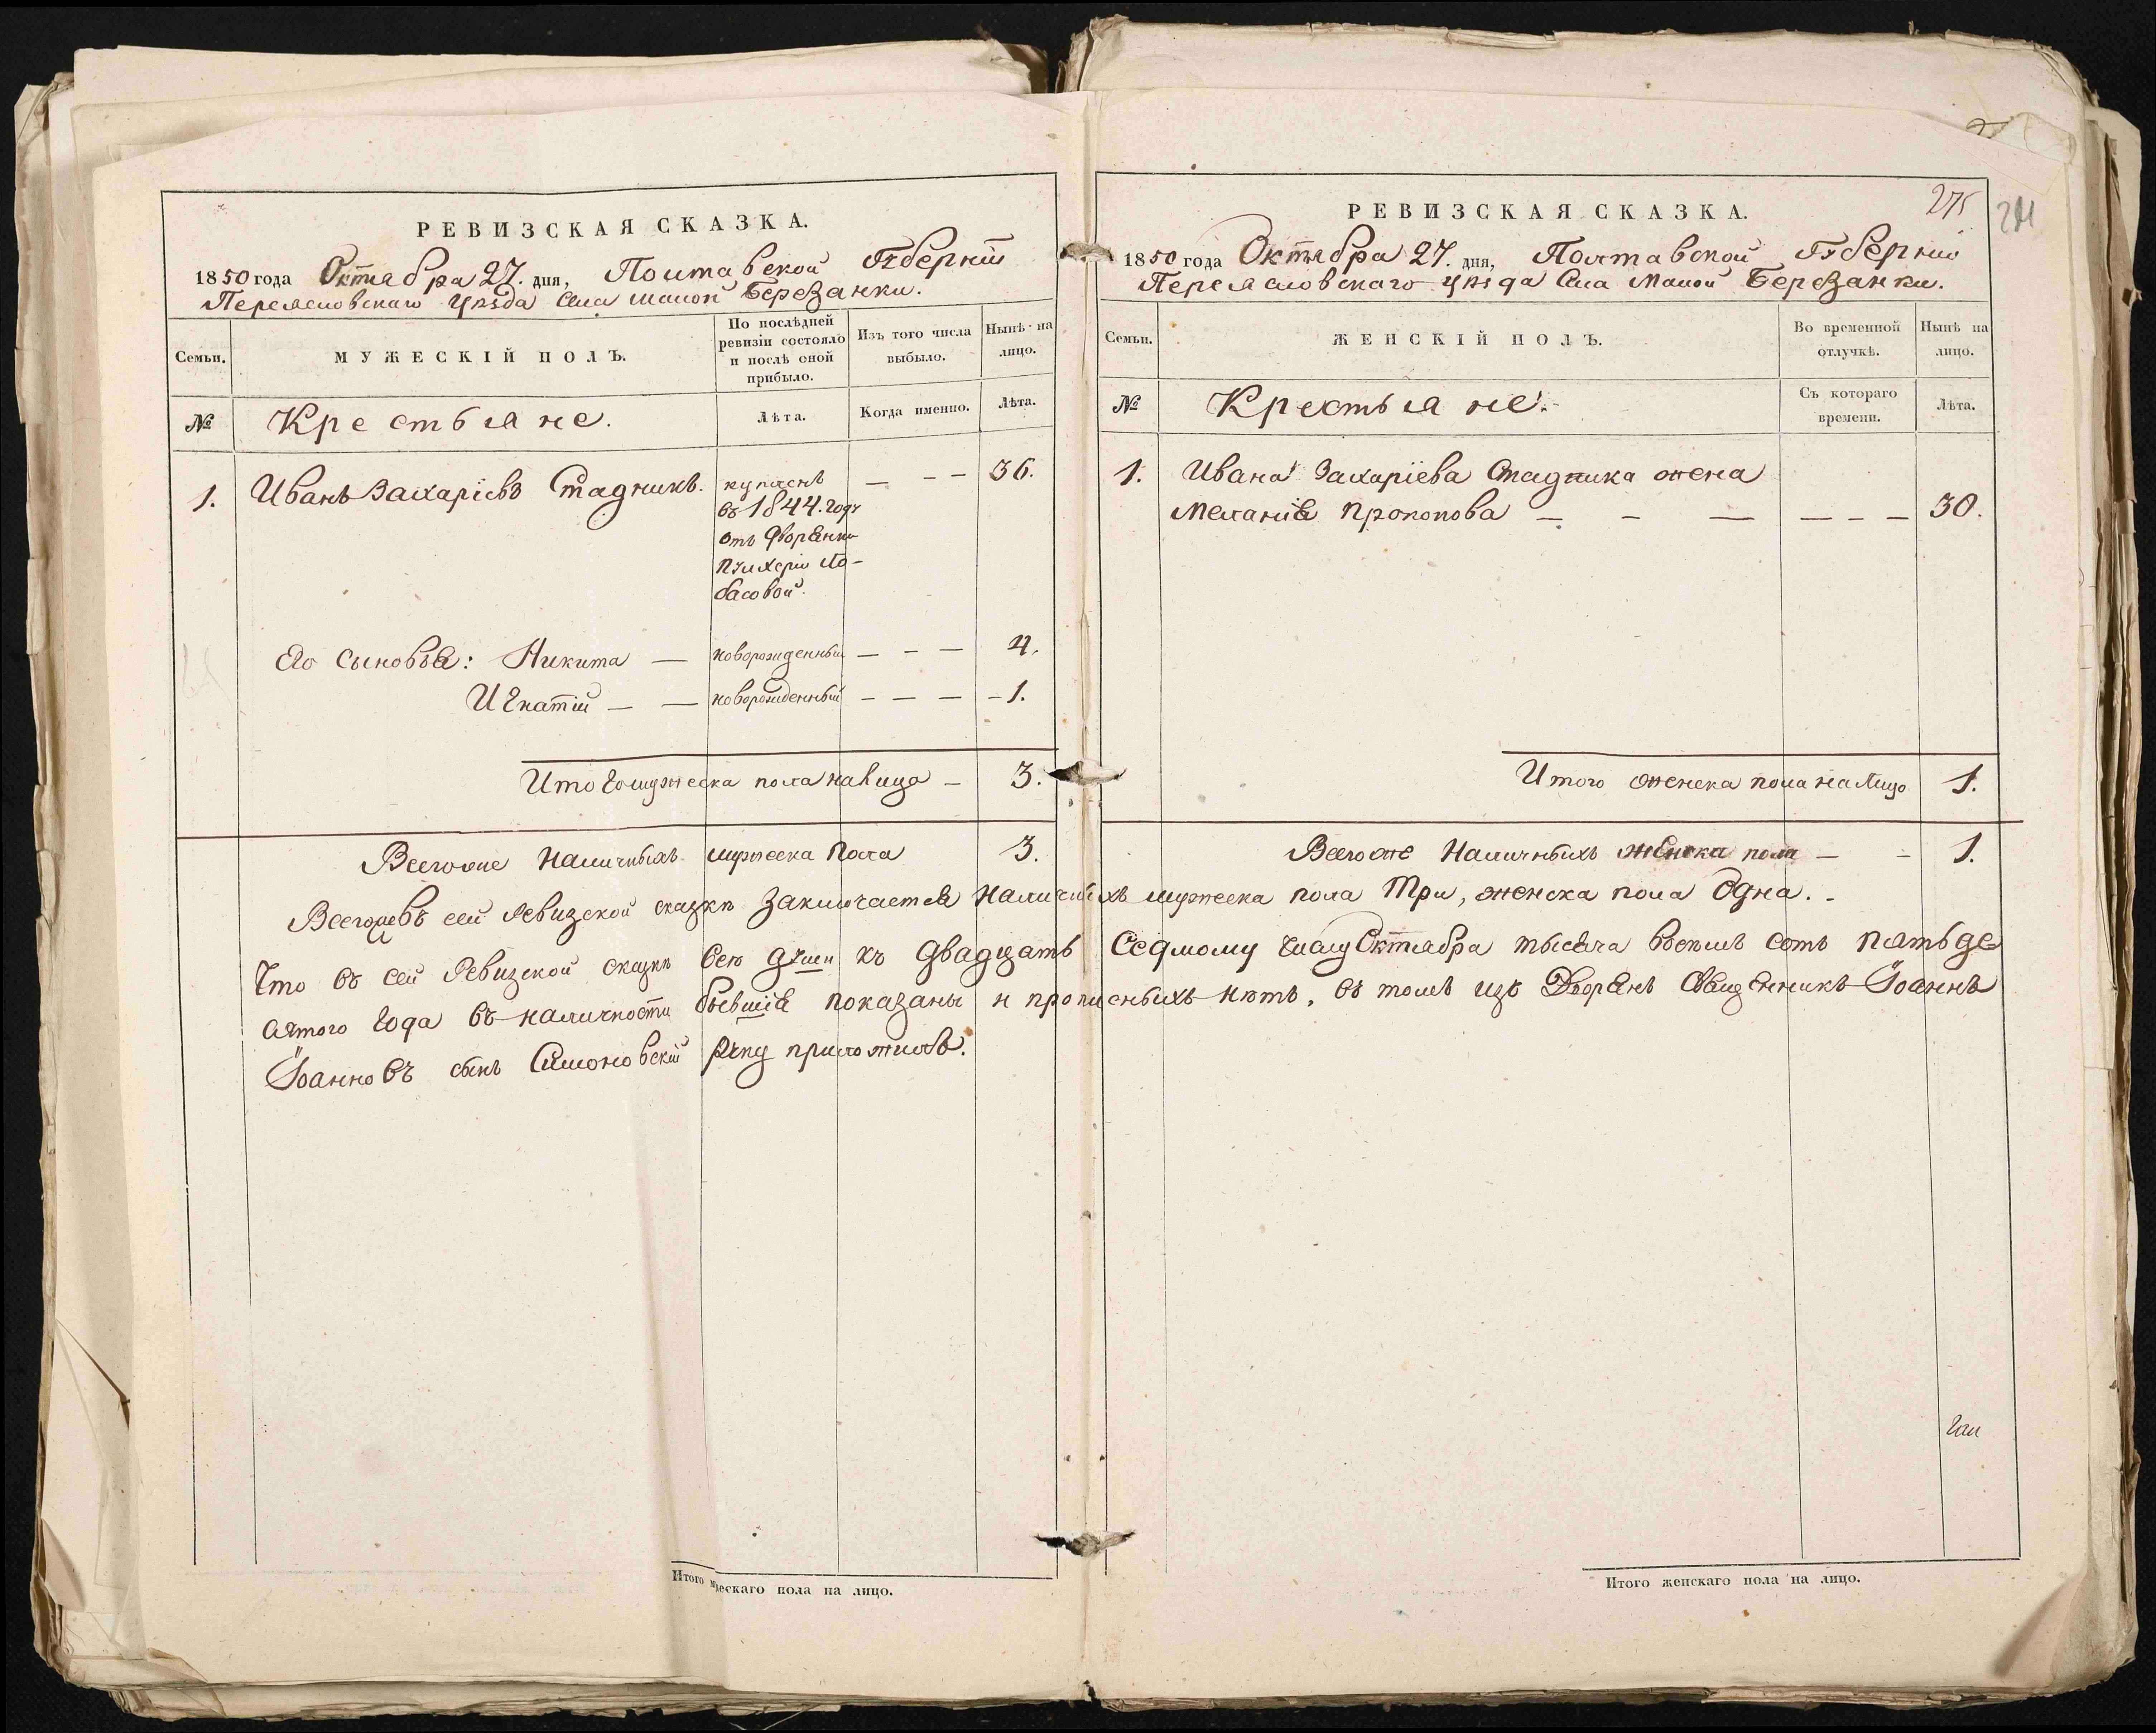 РЕВИЗСКАЯ СКАЗКА.
1850 года Октября 27. дня, Полтавской Губерніи
Переясловскаго уѣзда Села Малой Березанки.
Семьи.
МУЖЕСКІЙ ПОЛЪ.
По послѣдней ревизіи состояло и послѣ оной прибыло.
Изъ того числа выбыло.
Нынѣ на лицо.
№
Крестьяне.
Лѣта.
Когда именно.
Лѣта.
1. Иванъ Захаріевъ Стадникъ. купленъ — - - 36.
въ 1844. году
отъ Дворянки
Пулхеріи Ло-
басовой.
Его сыновья: Никита — новорожденный — - — 4.
Игнатій — — новорожденный — — — - 1.
Итого мужеска пола на лицо — 3.
Всего же наличныхъ мужеска пола 3.
РЕВИЗСКАЯ СКАЗКА.
275
1850 года Октября 27. дня, Полтавской Губерніи
Переясловскаго уѣзда Села Малой Березанки.
Семьи.
ЖЕНСКІЙ ПОЛЪ.
Во временной отлучкѣ.
Нынѣ на лицо.
№
Крестьяне.
Съ котораго времени.
Лѣта.
1. Ивана Захаріева Стадника жена
Меланія Прокопова — - — — - — 30.
Итого женска пола на лицо 1.
Всего же наличныхъ женска пола — - 1.
Всего же въ сей Ревизской сказкѣ заключается наличныхъ мужеска пола три, женска пола одна. -
Что въ сей Ревизской сказкѣ всѣ души къ двадцать седмому числу Октября тысяча восемь сотъ пятьде
сятого года въ наличности бывшія показаны и прописныхъ нѣтъ, въ томъ изъ Дворянъ Священникъ Іоаннъ
Іоанновъ сынъ Симоновскій руку приложилъ.
Итого мужескаго пола на лицо.
Итого женскаго пола на лицо.